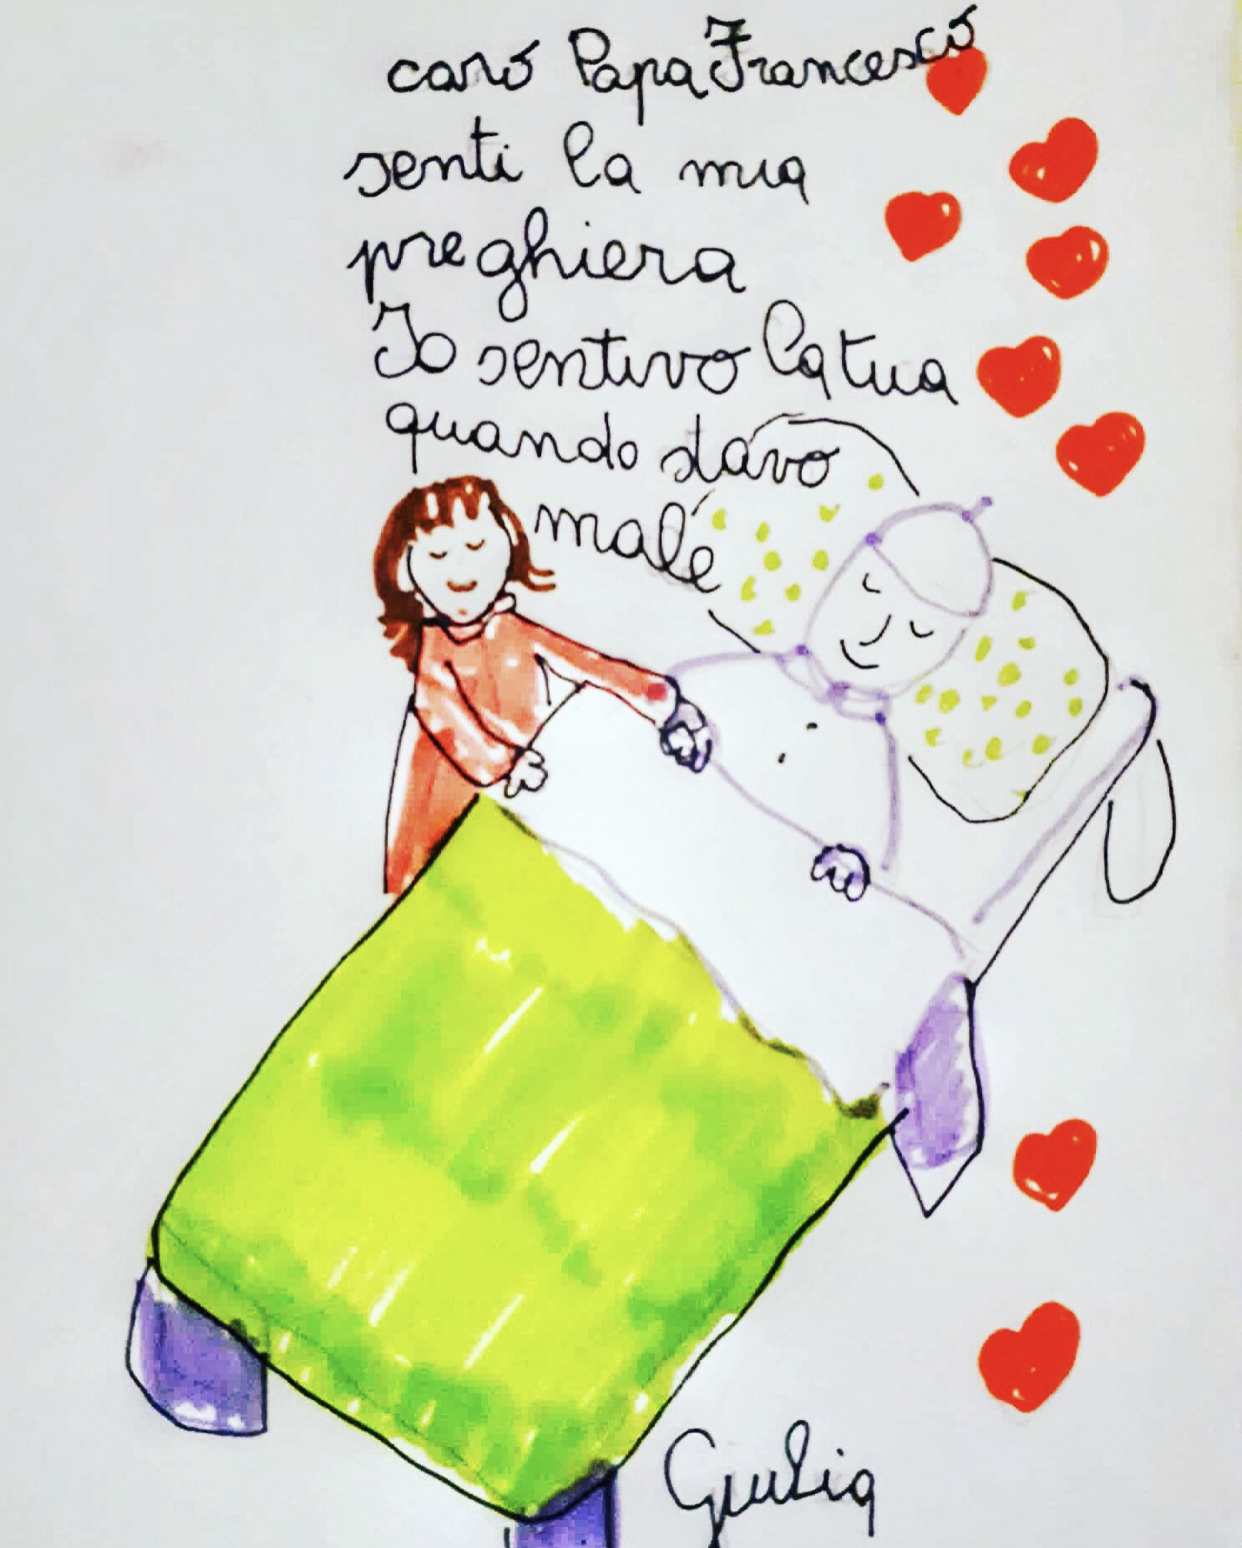 caro Papa Francesco
senti la mia
preghiera
Io sentivo la tua
quando stavo
male
Giulia